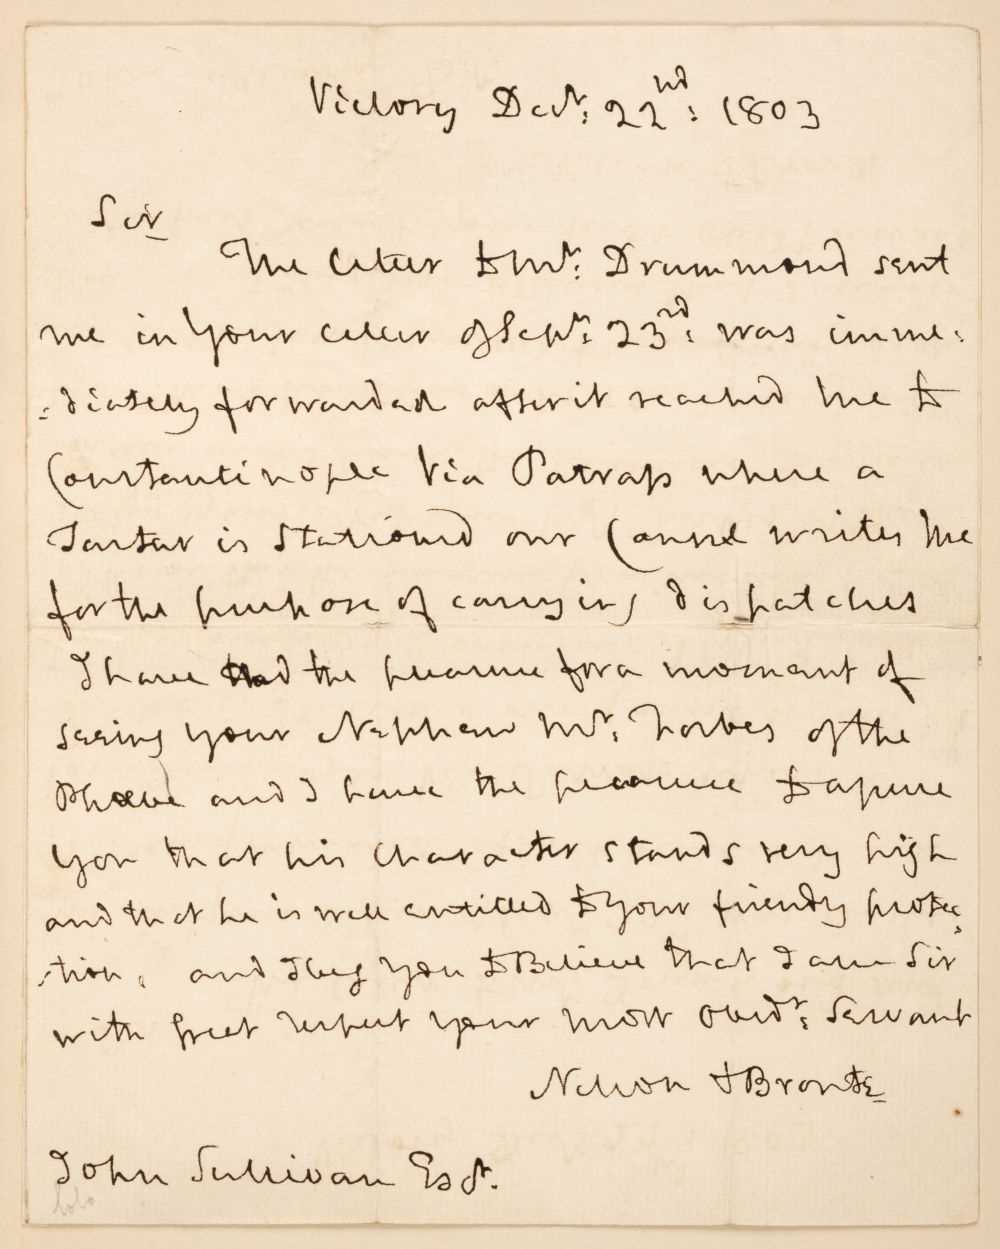 Victory Decr: 22nd: 1803
Sir
The letter to Mr: Drummond sent
me in your letter of Sepr: 23rd: was imme:
:diately forwarded after it reached me to
Constantinople Via Patrass where a
Tartar is stationed our Consul writes me
for the purpose of carrying dispatches
I have had the pleasure for a moment of
seeing your Nephew Mr: Forbes of the
Phœbe and I have the pleasure to assure
you that his Character stands very high
and that he is well entitled to your friendly protec
:tion, and I beg you to Believe that I am Sir
with great respect your most obedt: Servant
Nelson & Bronte
John Sullivan Esqr.